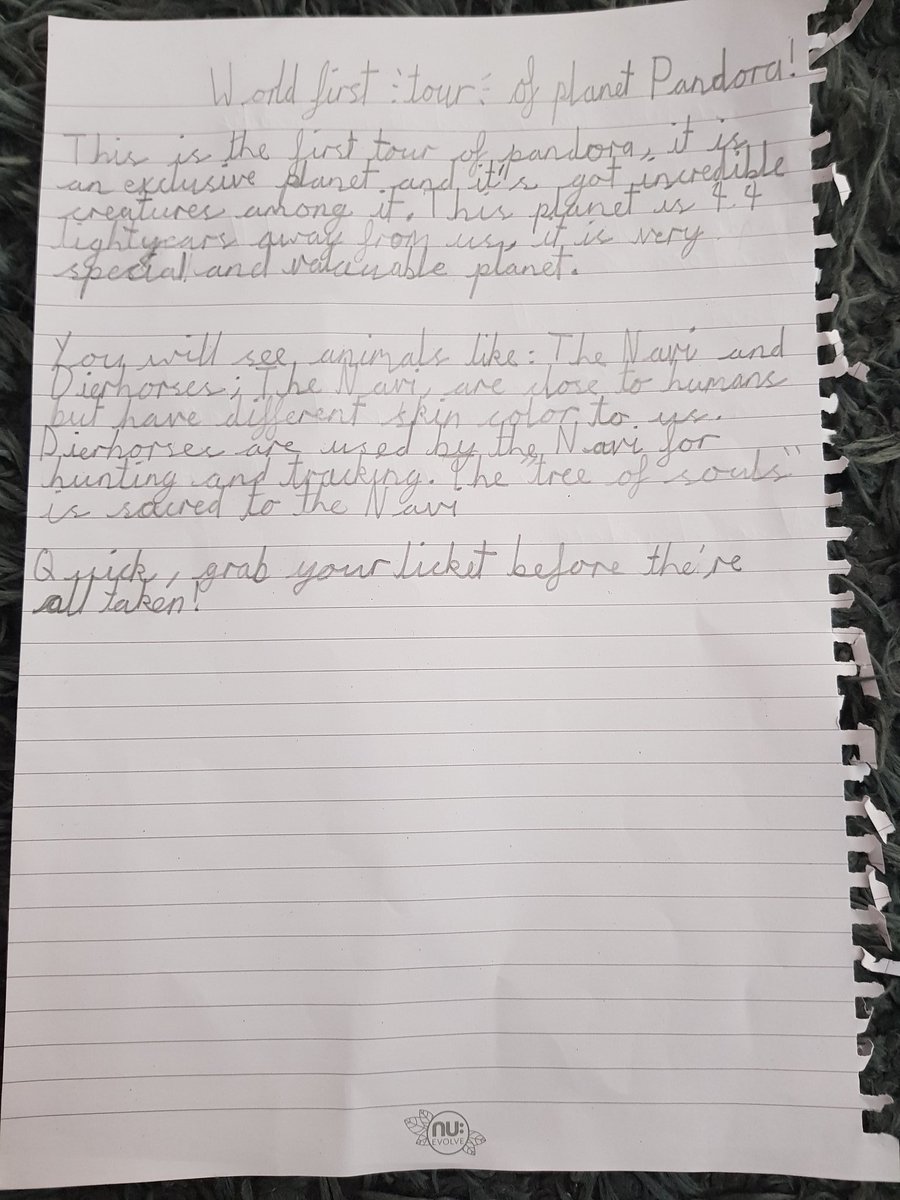 World first "tour" of planet Pandora!
This is the first tour of pandora, it is
an exclusive planet and it's got incredible
creatures among it. This planet is 4.4
lightyears away from us, it is very
special and valuable planet.
You will see animals like: The Navi and
Dierhorses; The Navi, are close to humans
but have different skin color to us.
Dierhorses are used by the Navi for
hunting and tracking. The "tree of souls"
is sacred to the Navi
Quick, grab your ticket before the're
all taken!
nu:
EVOLVE